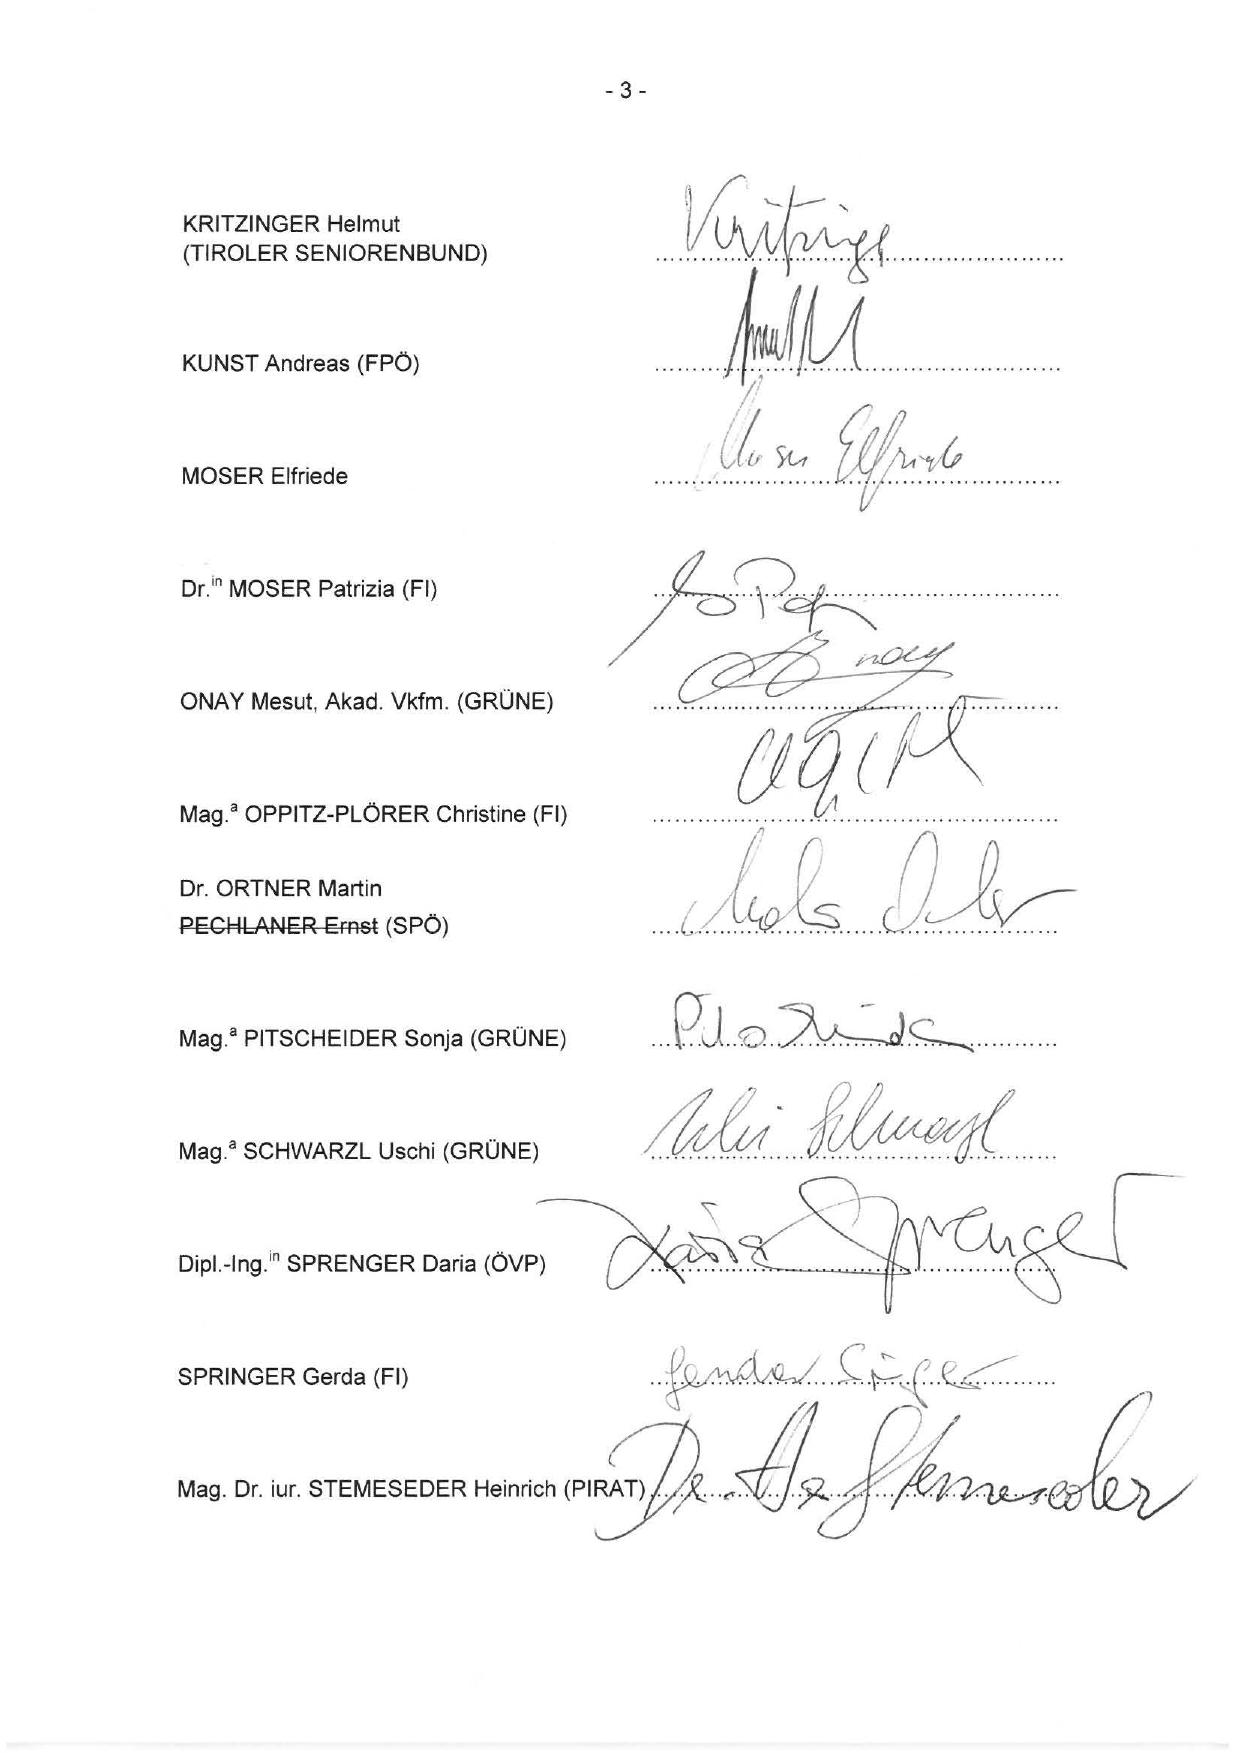 - 3 -
KRITZINGER Helmut
(TIROLER SENIORENBUND)
Kritzinger
KUNST Andreas (FPÖ)
MOSER Elfriede
Moser Elfriede
Dr.in MOSER Patrizia (FI)
ONAY Mesut, Akad. Vkfm. (GRÜNE)
Onay
Mag.a OPPITZ-PLÖRER Christine (FI)
Dr. ORTNER Martin
PECHLANER Ernst (SPÖ)
Mag.a PITSCHEIDER Sonja (GRÜNE)
Mag.a SCHWARZL Uschi (GRÜNE)
Uschi Schwarzl
Dipl.-Ing.in SPRENGER Daria (ÖVP)
Daria Sprenger
SPRINGER Gerda (FI)
Gerda Springer
Mag. Dr. iur. STEMESEDER Heinrich (PIRAT)
Dr. Stemeseder